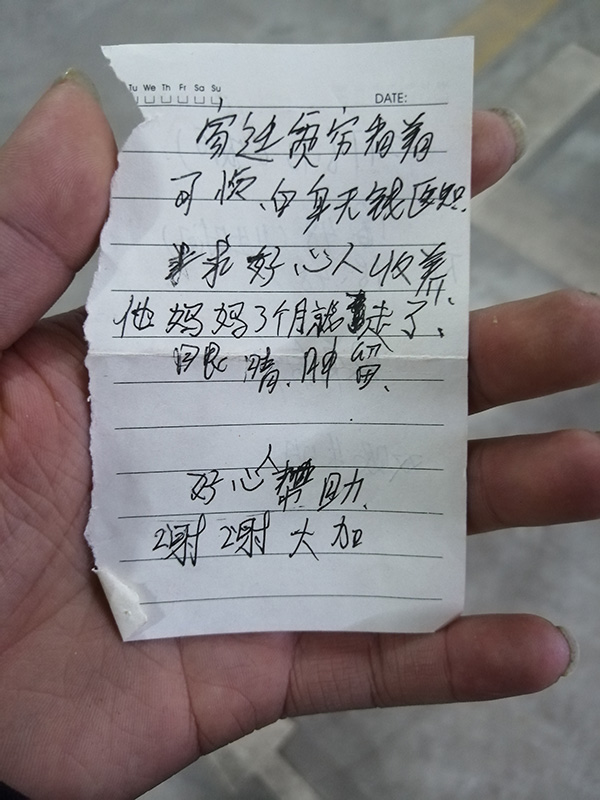 Tu We Th Fr Sa Su
DATE:
家廷贫穷有着
可怜.白身无钱医治.
求求好心人收养.
他妈妈3个月就走了.
眼睛.肿留.
好心人帮助.
谢谢大加